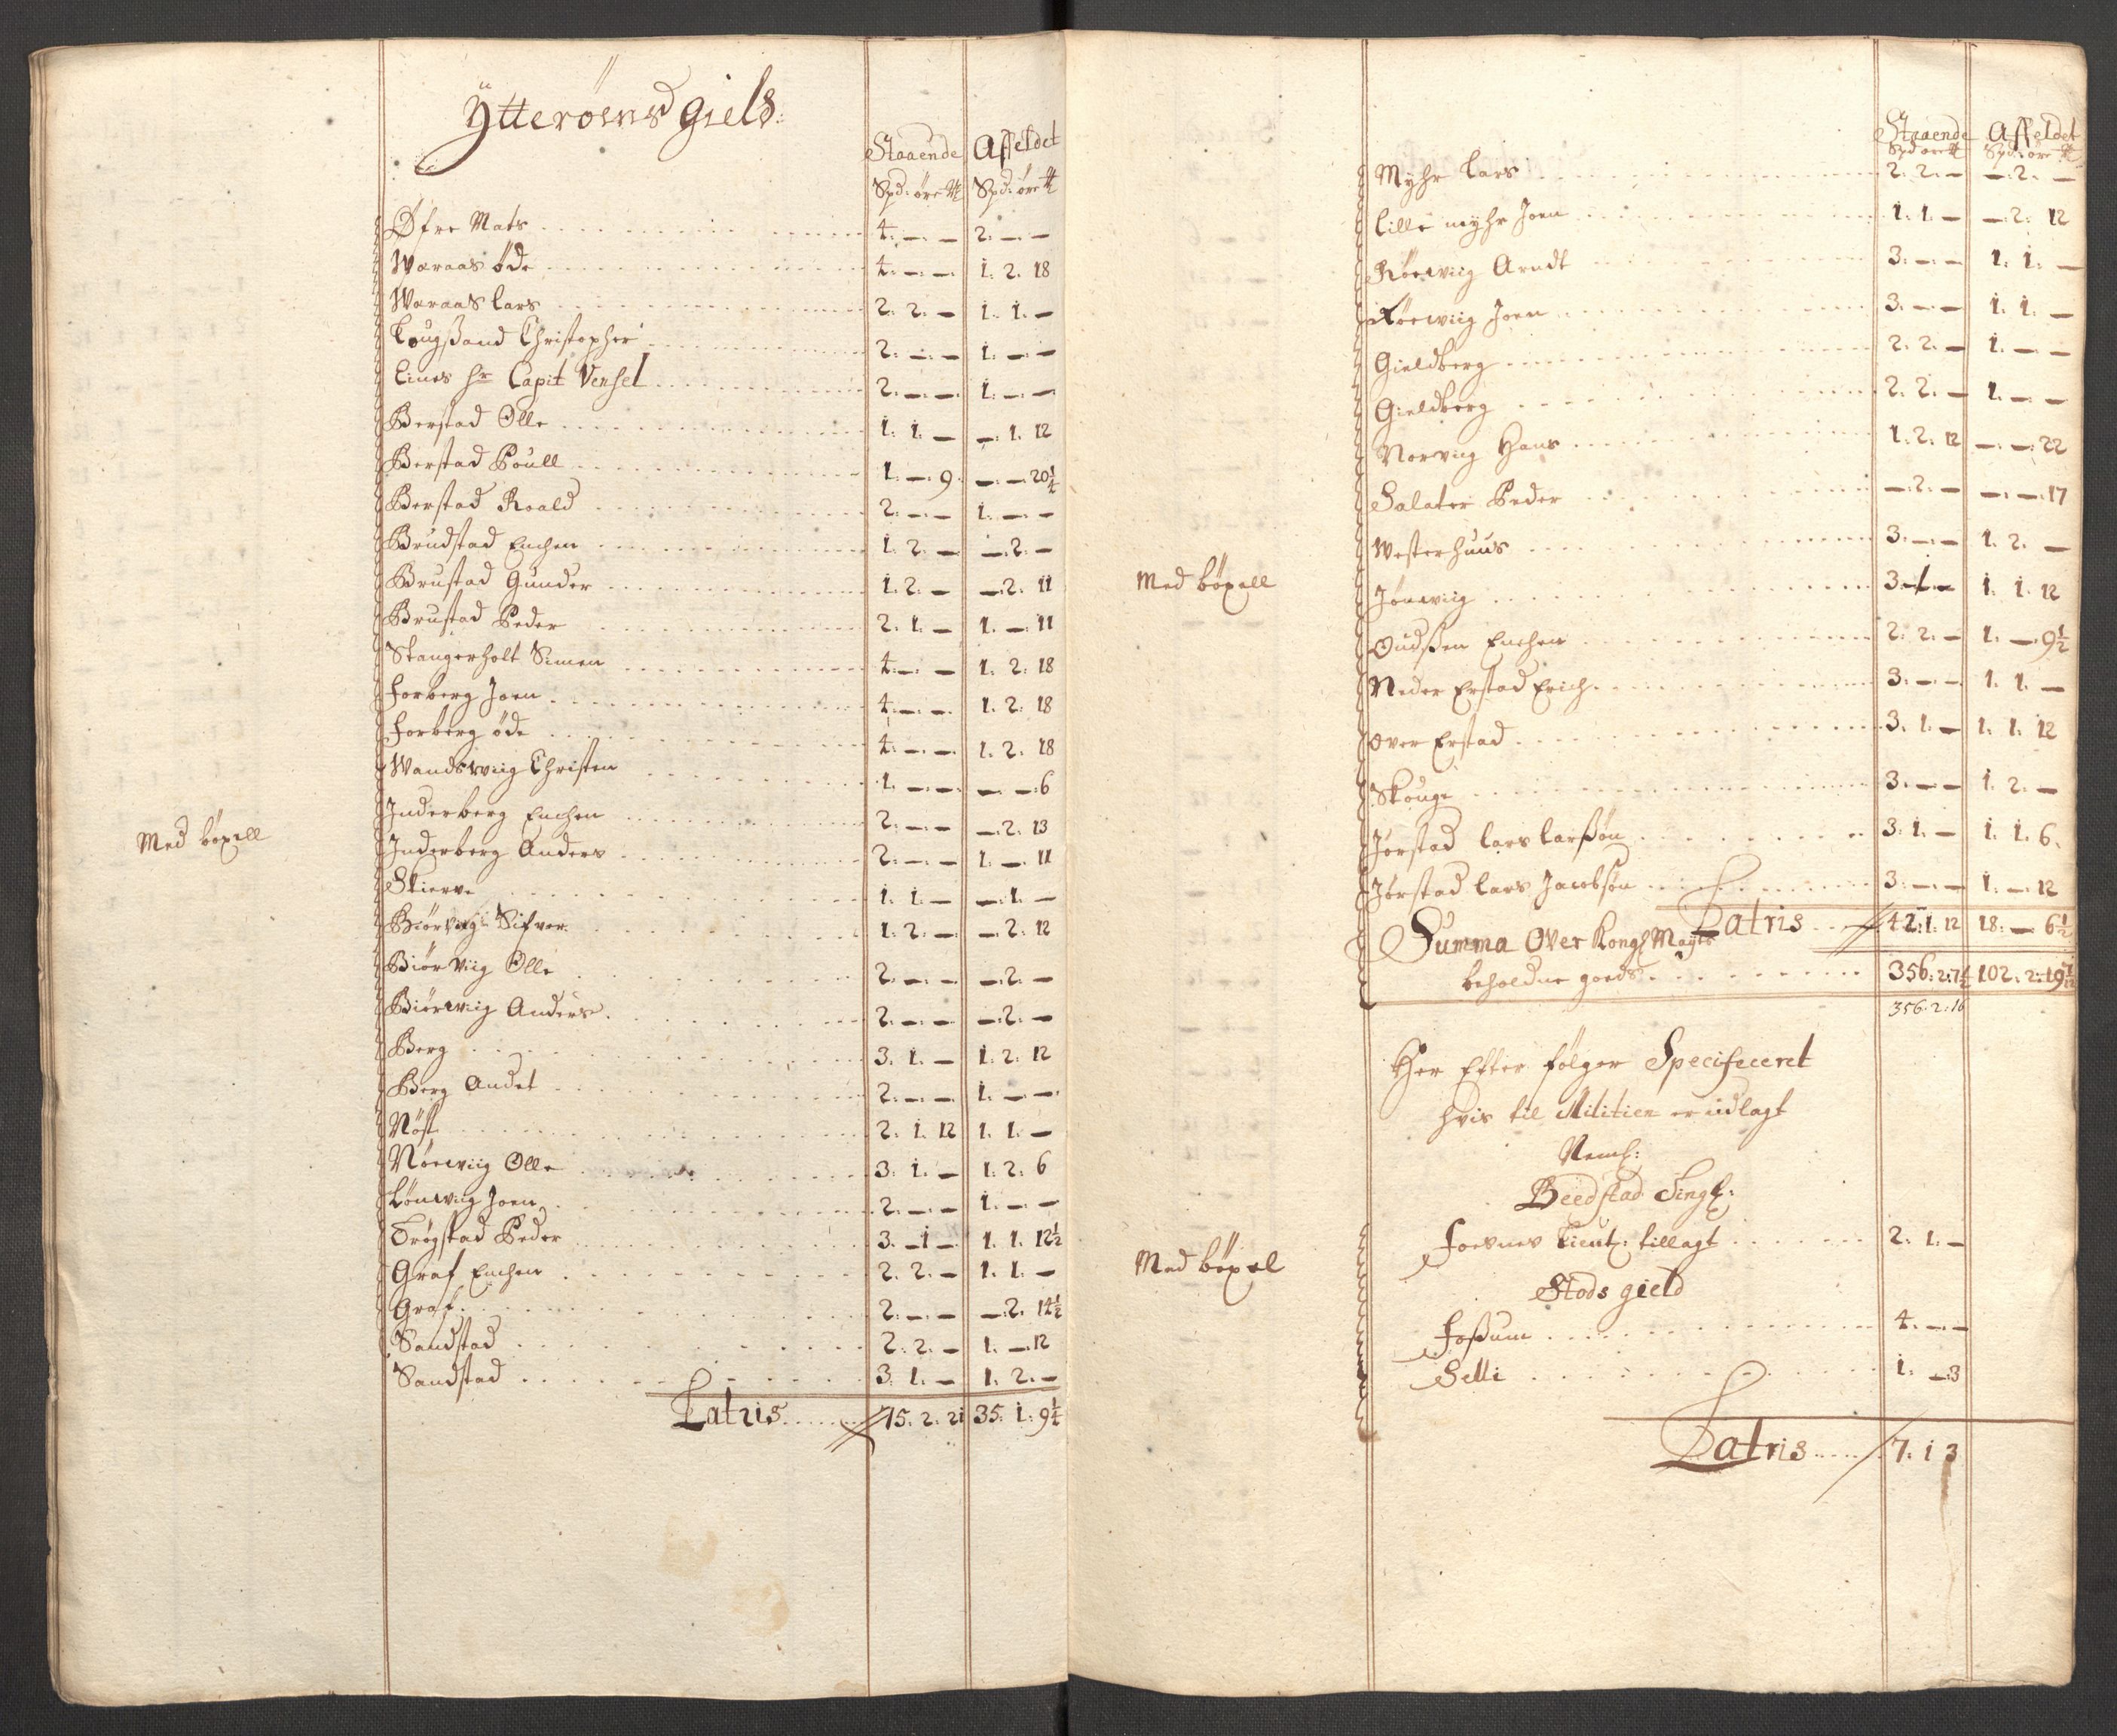 Ytterøens gield:
Staaende Affeldet
Spd: øre ℔ Spd: øre ℔
Øfre Mats 4. — — 2. — —
Waraas øde 4. — — 1. 2. 18
Waraas Lars 2. 2. — 1. 1. —
Lougßand Christopher 2. — — 1. — —
Lines hr Capit Vensel 2. — — 1. — —
Berstad Olle 1. 1. — —. 1. 12
Berstad Poull 1. —. 9. —. —. 20½
Berstad Roald 2. — — 1. — —
Brudstad Enchen 1. 2. — —. 2. —
Brustad Gunder 1. 2. — —. 2. 11
Brustad Peder 2. 1. — 1. —. 11
Stangerholt Simen 4. — — 1. 2. 18
Forberg Joen 4. — — 1. 2. 18
Forberg øde 4. — — 1. 2. 18
Wandswiig Christen 1. — — — —. 6
Inderberg Enchen 2. — — —. 2. 13
Med böxell
Inderberg Anders 2. — — 1. —. 11
Skierve 1. 1. — —. 1. —
Biörvigh Sifver 1. 2. — —. 2. 12
Biörviig Olle 2. — — —. 2. —
Biörwiig Anders 2. — — —. 2. —
Berg 3. 1. — 1. 2. 12
Berg Andet 2. — — 1. — —
Nöst 2. 1. 12 1. 1. —
Nörwiig Olle 3. 1. — 1. 2. 6
Lönwiig Joen 2. — — 1. — —
Trögstad Peder 3. 1 — 1. 1. 12½
Graf Enchen 2. 2. — 1. 1. —
Graf 2. — — —. 2. 14½
Sandstad 2. 2. — 1. —. 12
Sandstad 3. 1. — 1. 2. —
Latris 75. 2. 21 35. 1. 9¼
Staaende Affeldet
Spd øre ℔ Spd: øre ℔
Myhr Lars 2. 2. — —. 2. —
Lille myhr Joen 1. 1. — —. 2. 12
Rörwiig Arndt 3. — — 1. 1. —
Rörwiig Joen 3. — — 1. 1. —
Gieldberg 2. 2. — 1. — —
Gieldberg 2. 2. — 1. — —
Norviig Hans 1. 2. 12 —. —. 22
Salater Peder —. 2. — —. —. 17
Westerhuus 3. — — 1. 2. —
Med böxell
Jönwiig 3. 1 — 1. 1. 12
Oudßen Enchen 2. 2. — 1. —. 9½
Neder Erstad Erich 3. — — 1. 1. —
Over Erstad 3. 1. — 1. 1. 12
Skouge 3. — — 1. 2. —
Jörstad Lars Larßön 3. 1. — 1. 1. 6.
Jörstad Lars Jacobsön 3. — — 1. —. 12
Latris 42. 1. 12 18. — 6½
Summa Over Kongl Mayts
beholdne goeds 356. 2. 7½ 102. 2. 19
356. 2. 16
Her Efter følger Specificeret
hvis til Militien er udlagt
Neml:
Beedstad Tingl:
Med böxel
Foesnes Lieut: tillagt 2. 1. —
Stods gield
Foßum 4. — —
Selli 1. —. 3
Latris 7. 1 3